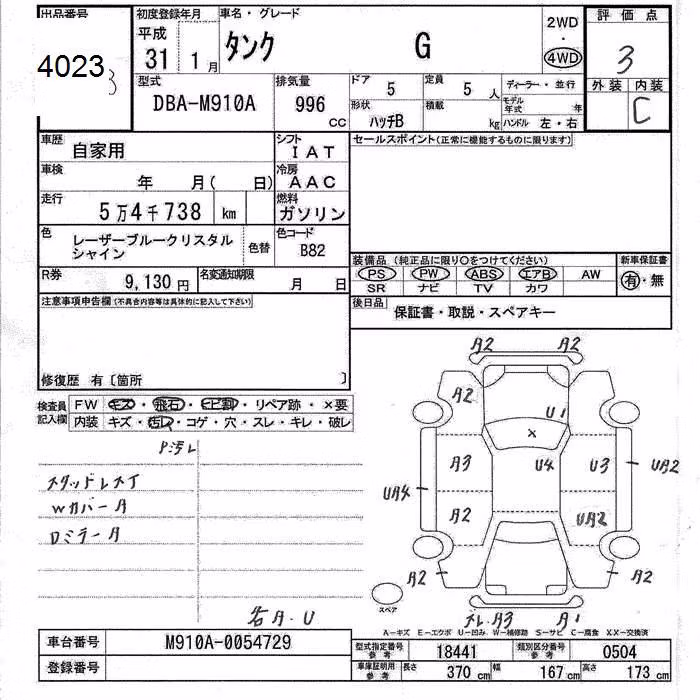 出品番号 初度登録年月 車名・グレード 評価点
4023 3 平成 31 1月 タンク G 2WD・4WD 3
型式 排気量 ドア 5 定員 5 人 ディーラー・並行 外装 内装
DBA-M910A 996 CC 形状 ハッチB 積載 kg モデル年式 年 ハンドル 左・右 C
車歴 自家用 シフト IAT セールスポイント(正常に機能するものに限ります)
車検 年 月( 日) 冷房 AAC
走行 5万4千738 km 燃料 ガソリン
色 レーザーブルークリスタルシャイン 色替 色コード B82
装備品 (純正品に限り○をつけてください) 新車保証書
PS PW ABS エアB AW 有・無
SR ナビ TV カワ
R券 9,130円 名変通知期限 月 日
後日品 保証書・取説・スペアキー
注意事項申告欄(不具合内容等は具体的に記入して下さい)
修復歴 有〔箇所 〕
検査員記入欄 FW キズ・飛石・ヒビ割・リペア跡・×要
内装 キズ・汚レ・コゲ・穴・スレ・キレ・破レ
P汚レ
スタッドレスT
WカバーA
DミラーA
A2 A2
A2 U1
×
A3 U4 U3 UA2
UA4
A2 UA2
A2 A2
スペア A3 A1
A・U
A-キズ E-エクボ U-凹み W-補修跡 S-サビ C-腐食 XX-交換済
車台番号 M910A-0054729 型式指定番号 参考 18441 類別区分番号 参考 0504
登録番号 車庫証明用 参考 長さ 370 cm 幅 167 cm 高さ 173 cm